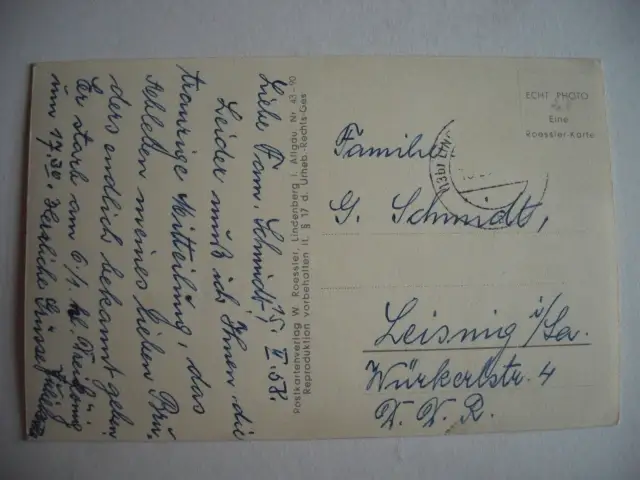 15. II. 58.
Liebe Fam. Schmidt!
Leider muß ich Ihnen die
traurige Mitteilung, das
Ableben meines lieben Bru-
ders endlich bekannt geben.
Er starb am 6./1. hl. Dreikönig
um 17.30. Herzliche Grüsse
Postkartenverlag W. Roessler, Lindenberg i. Allgäu Nr. 43-90
Reproduktion vorbehalten lt. § 17 d. Urheb.-Rechts-Ges
ECHT PHOTO
Eine
Roessler-Karte
Familie
G. Schmidt,
Leisnig i/Sa.
Würkertstr. 4
D. D. R.